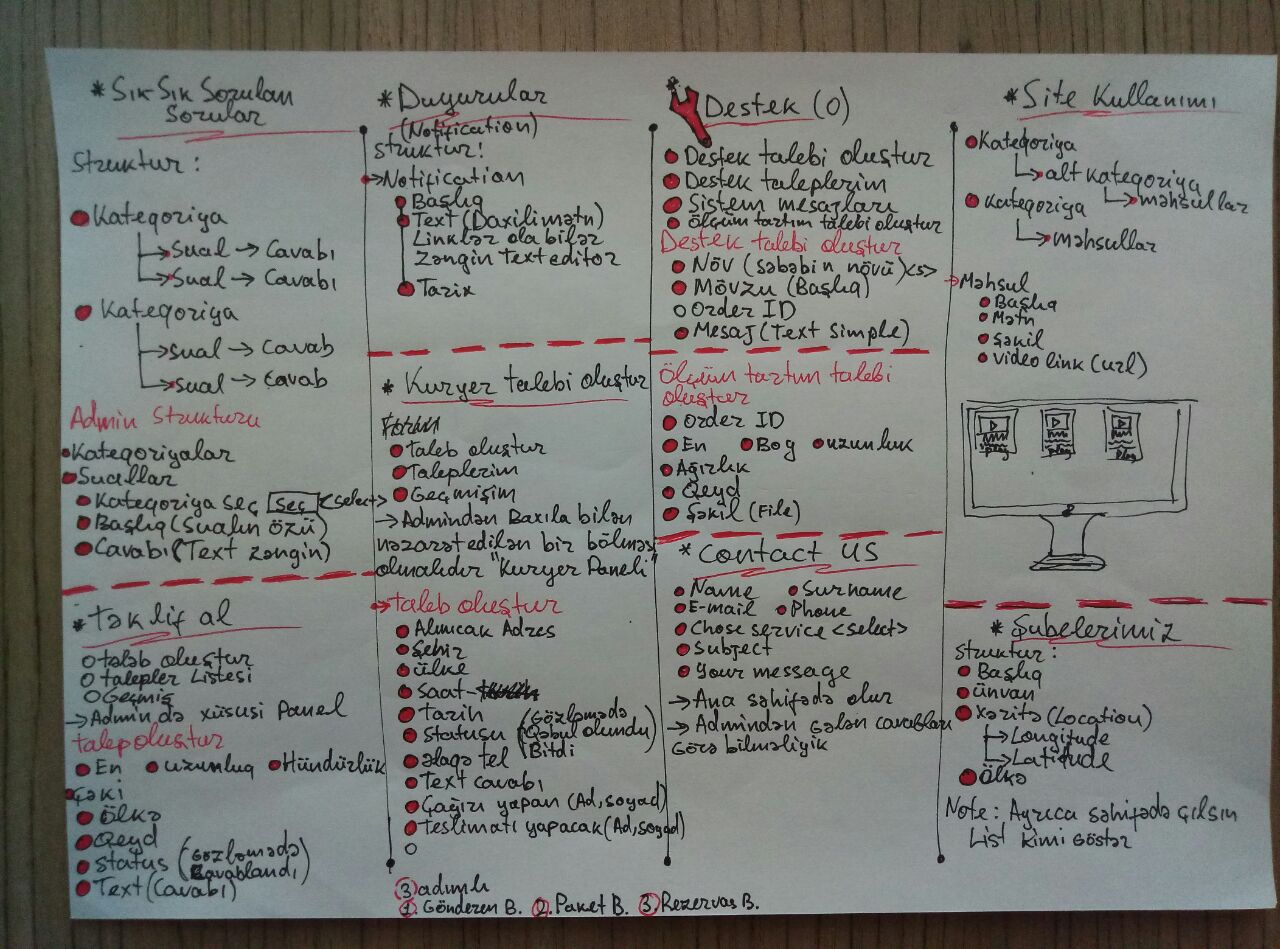 * Sık Sık Sorulan
Sorular
Struktur :
Kateqoriya
Sual → Cavabı
Sual → Cavabı
Kateqoriya
Sual → Cavab
Sual → Cavab
Admin Strukturu
Kateqoriyalar
Suallar
Kateqoriya seç seç <select>
Başlıq (Sualın özü)
Cavabı (Text zəngin)
* Təklif al
O tələb oluştur
O talepler Listesi
O Geçmiş
→ Admində xüsusi panel
talep oluştur
En uzunluq Hündürlük
Çəki
Ölkə
Qeyd
Status (Gözləmədə
Cavablandı)
Text (Cavabı)
* Duyurular
(Notification)
Struktur!
→ Notification
Başlıq
Text (Daxili mətn)
Linklər ola bilər
Zəngin text editor
Tarix
* Kuryer talebi oluştur
Taleb oluştur
Taleplerim
Geçmişim
→ Admindən Baxıla bilən
nəzarət edilən bir bölməsi
olmalıdır "Kuryer Paneli"
→ taleb oluştur
Alınıcak Adres
Şehir
ülke
saat -
tarih
statusu (Gözləmədə
Qəbul olundu
Bitdi)
əlaqə tel
Text cavabı
Çağırı yapan (Ad, soyad)
Teslimatı yapacak (Ad, soyad)
O
③ adımlı
1. Gönderen B. 2. Paket B. 3 Rezervas B.
* Destek (0)
Destek talebi oluştur
Destek taleplerim
Sistem mesajları
ölçüm tartım talebi oluştur
Destek talebi oluştur
Növ (səbəbin növü) <s>
Mövzu (Başlıq)
O Order ID
Mesaj (Text Simple)
Ölçüm tartım talebi
oluştur
Order ID
En Boy uzunluk
Ağırlık
Qeyd
Şəkil (File)
* Contact US
Name Surname
E-mail Phone
Chose service <select>
Subject
Your message
→ Ana səhifədə olur
→ Admindən gələn cavabları
görə bilməliyik
* Site Kullanımı
Kateqoriya
alt kateqoriya
məhsullar
Kateqoriya
məhsullar
→ Məhsul
Başlıq
Mətn
Şəkil
video link (url)
play play play
* Şubelerimiz
Struktur :
Başlıq
ünvan
Xəritə (Location)
Longitude
Latitude
Ölkə
Note: Ayrıca səhifədə açılsın
List kimi göstər